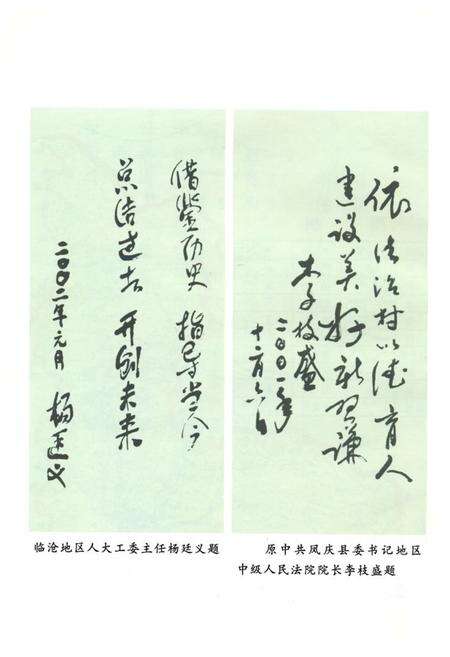 依法治村以德育人
建设美好新习谦
李枝盛
二〇〇一年
十二月六日
原中共凤庆县委书记地区
中级人民法院院长李枝盛题
借鉴历史 指导当今
总结过去 开创未来
二〇〇二年元月 杨廷义
临沧地区人大工委主任杨廷义题